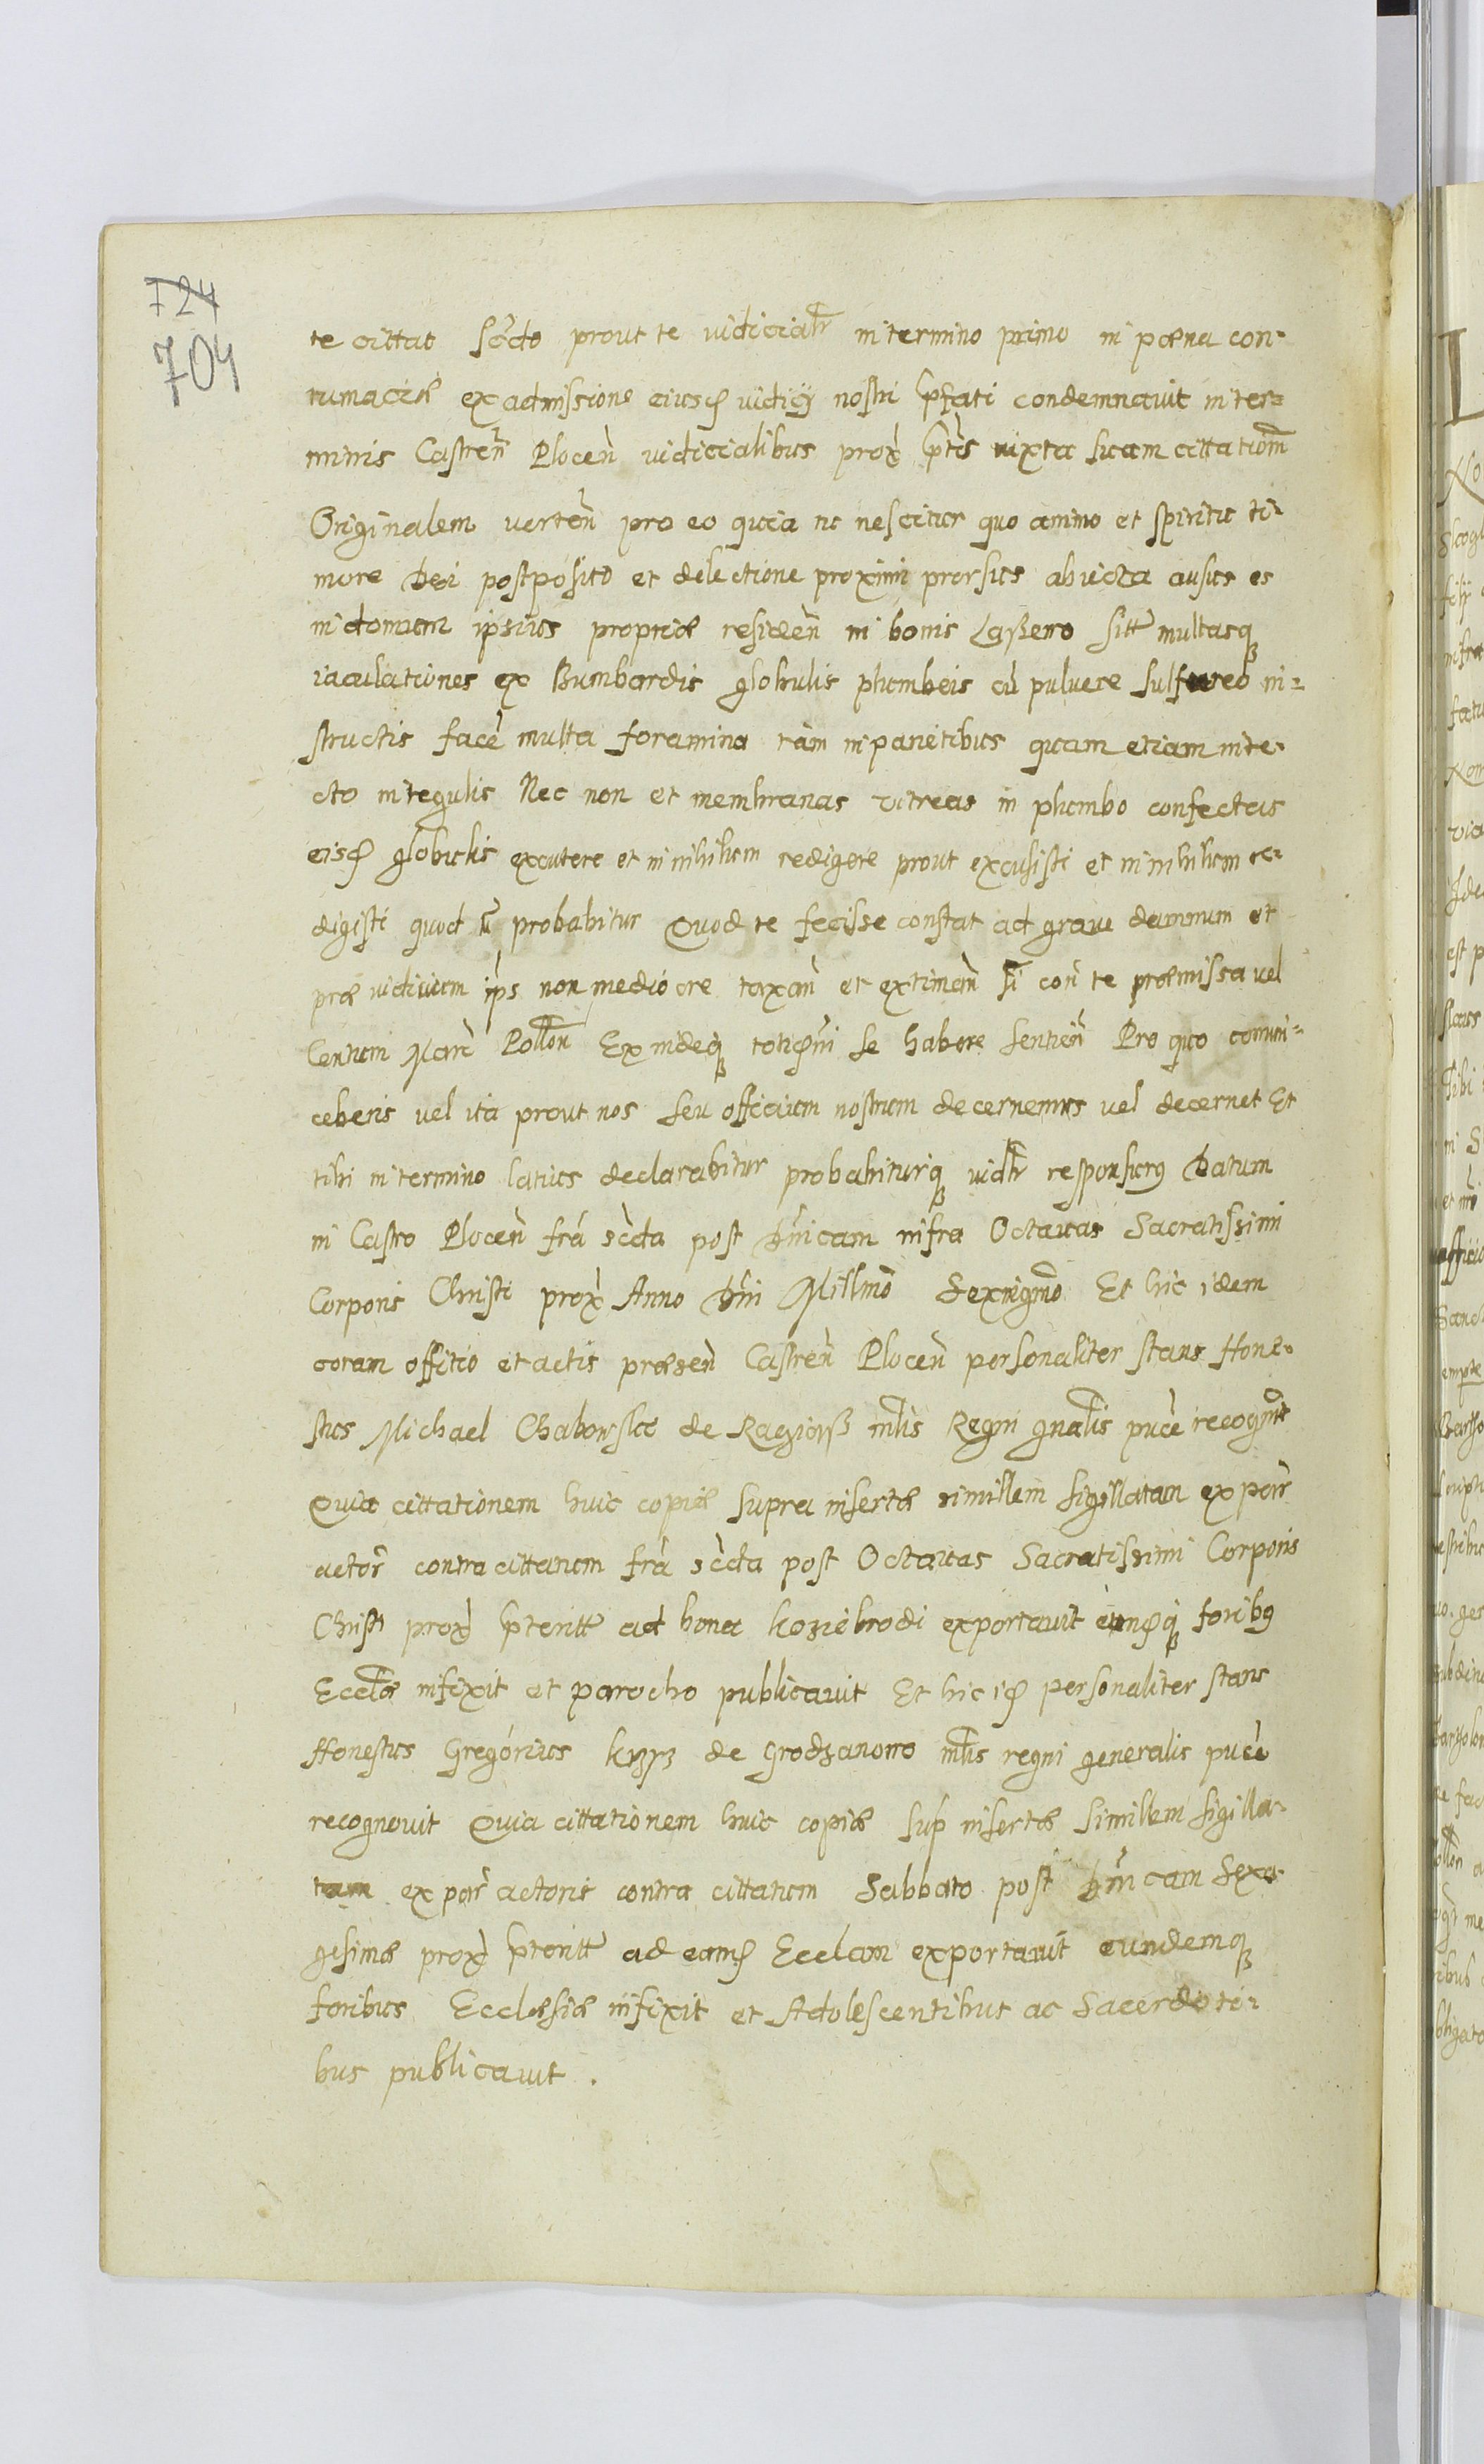 724
704
te cittat scdo prout te iudicialr in termino primo in pœna con-
tumaciæ ex admissione eiusd iudicij nostri pfati condemnavit in ter-
minis Castren Plocen iudicialibus prox ptis iuxta suam cittationm
Originalem verten pro eo quia tu nescitur quo animo et spiritu ti-
more Dei postposito et delectione proximi prorsus abiecta ausus es
in domum ipsius propriæ residen in bonis Laßewo sitt multasq
iaculationes ex Bumbardis globulis plumbeis cu pulvere sulfureo in-
structis face multa foramina tam in parietibus quam etiam in te-
cto in tegulis Nec non et membranas vitreas in plumbo confectas
eisd globulis excutere et in nihilum redigere prout excusisti et in nihilum re-
digisti quod tr probabitur Quod te fecisse constat ad grave damnum et
præiudicium ips non mediocre taxan et extiman si con te præmissa vel
Centum Marc Pollon Ex indeq totidm se habere sentien Pro quo convin-
ceberis vel ita prout nos seu officium nostrum decernemus vel decernet Et
tibi in termino latius declarabitur probabiturq iudlr responsurus Datum
in Castro Plocen fra scda post Dnicam infra Octavas Sacratissimi
Corporis Christi prox Anno Dni Millmo Sexingmo Et hic idem
coram offitio et actis præsen Castren Plocen personaliter stans Hone-
stus Michael Chabowski de Raziowß mlis Regni gnalis puce recognvit
Quia cittationem huic copiæ supra insertæ simillem sigillatam ex par
actor contra cittatum fra scda post Octavas Sacratissimi Corporis
Christi prox pteritt ad bona Koziebrodi exportavit eumdq foribus
Ecclæ infixit et parocho publicavit Et hic id personaliter stans
Honestus Gregórius krzß de Grodzanowo mlis regni generalis puce
recognovit Quia cittationem huic copiæ sup insertæ simillem sigilla-
tam ex par actoris contra cittatum Sabbato post Dnicam Sexa-
gesimæ prox pteritt ad eamd Ecclam exportavit eundemq
foribus Ecclesiæ infixit et Adolescentibus ac Sacerdoti-
bus publicavit .